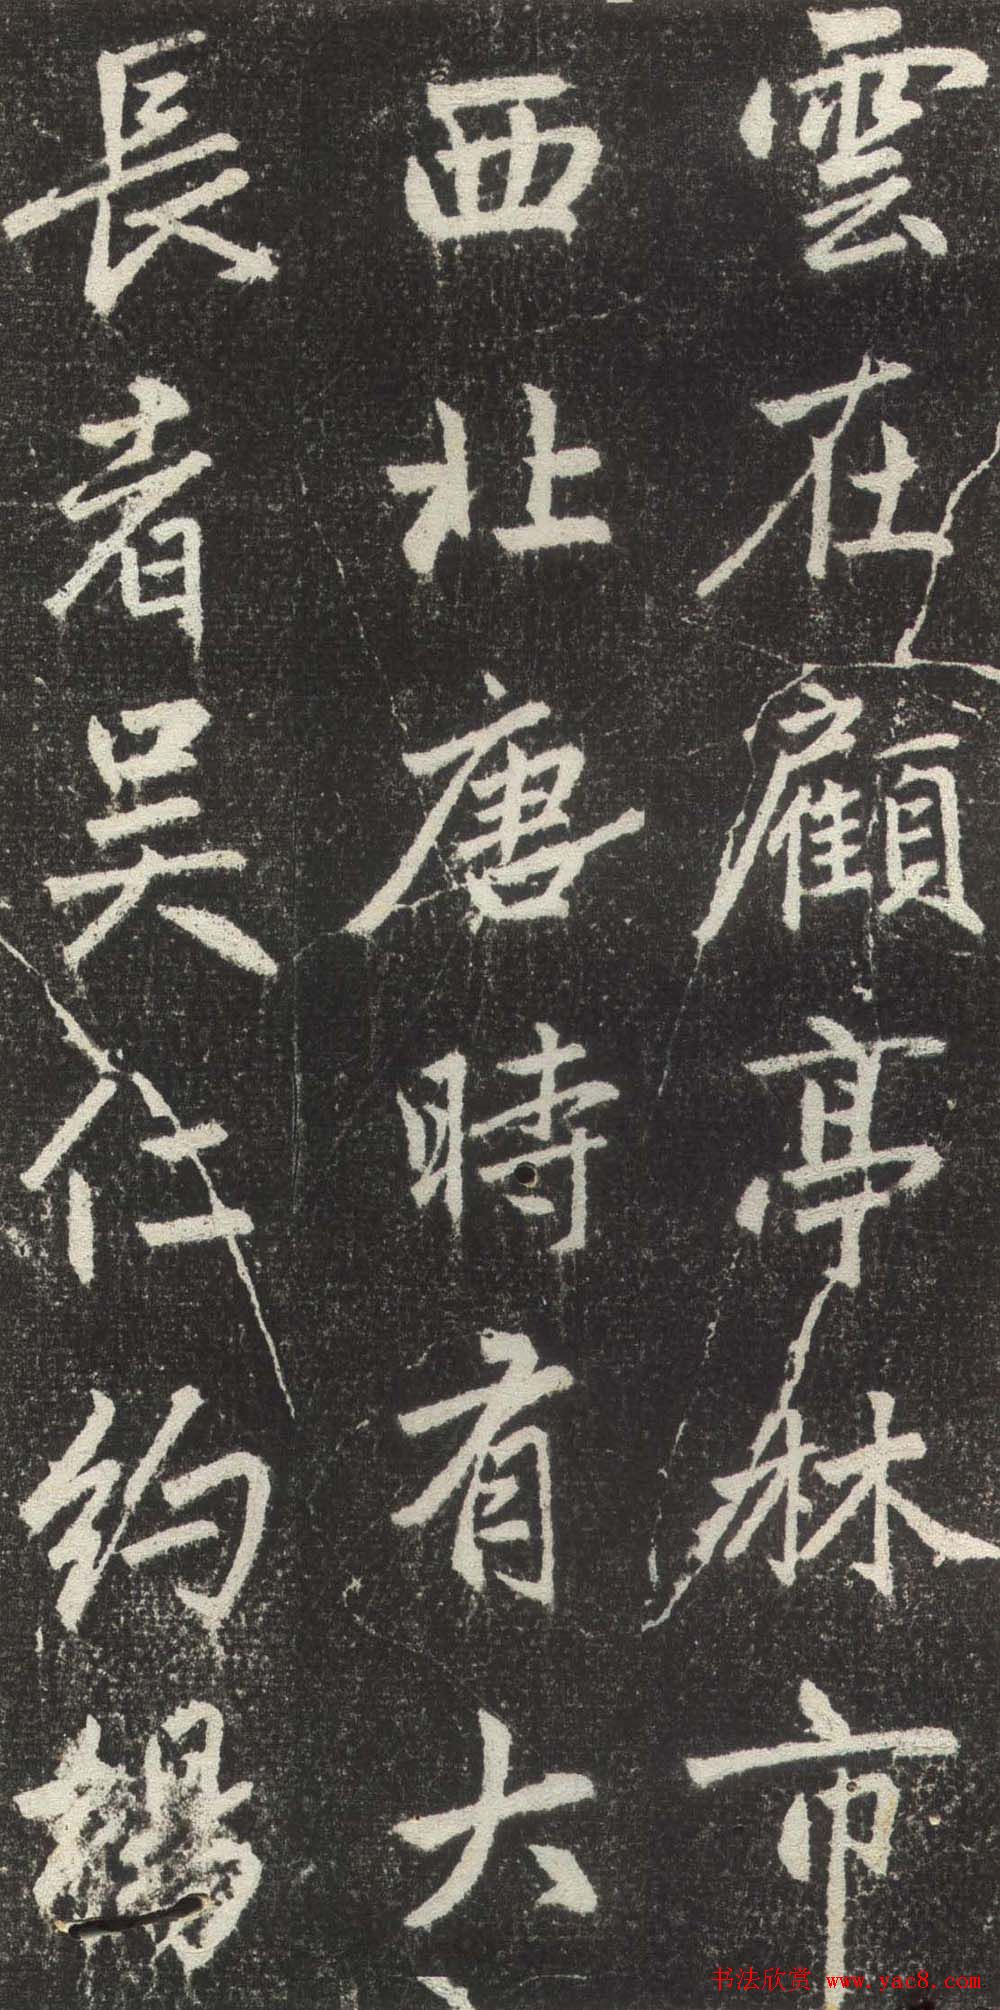 雲在顧亭林市
西北唐時有大
長者吳仕約
书法欣赏 www.yac8.com